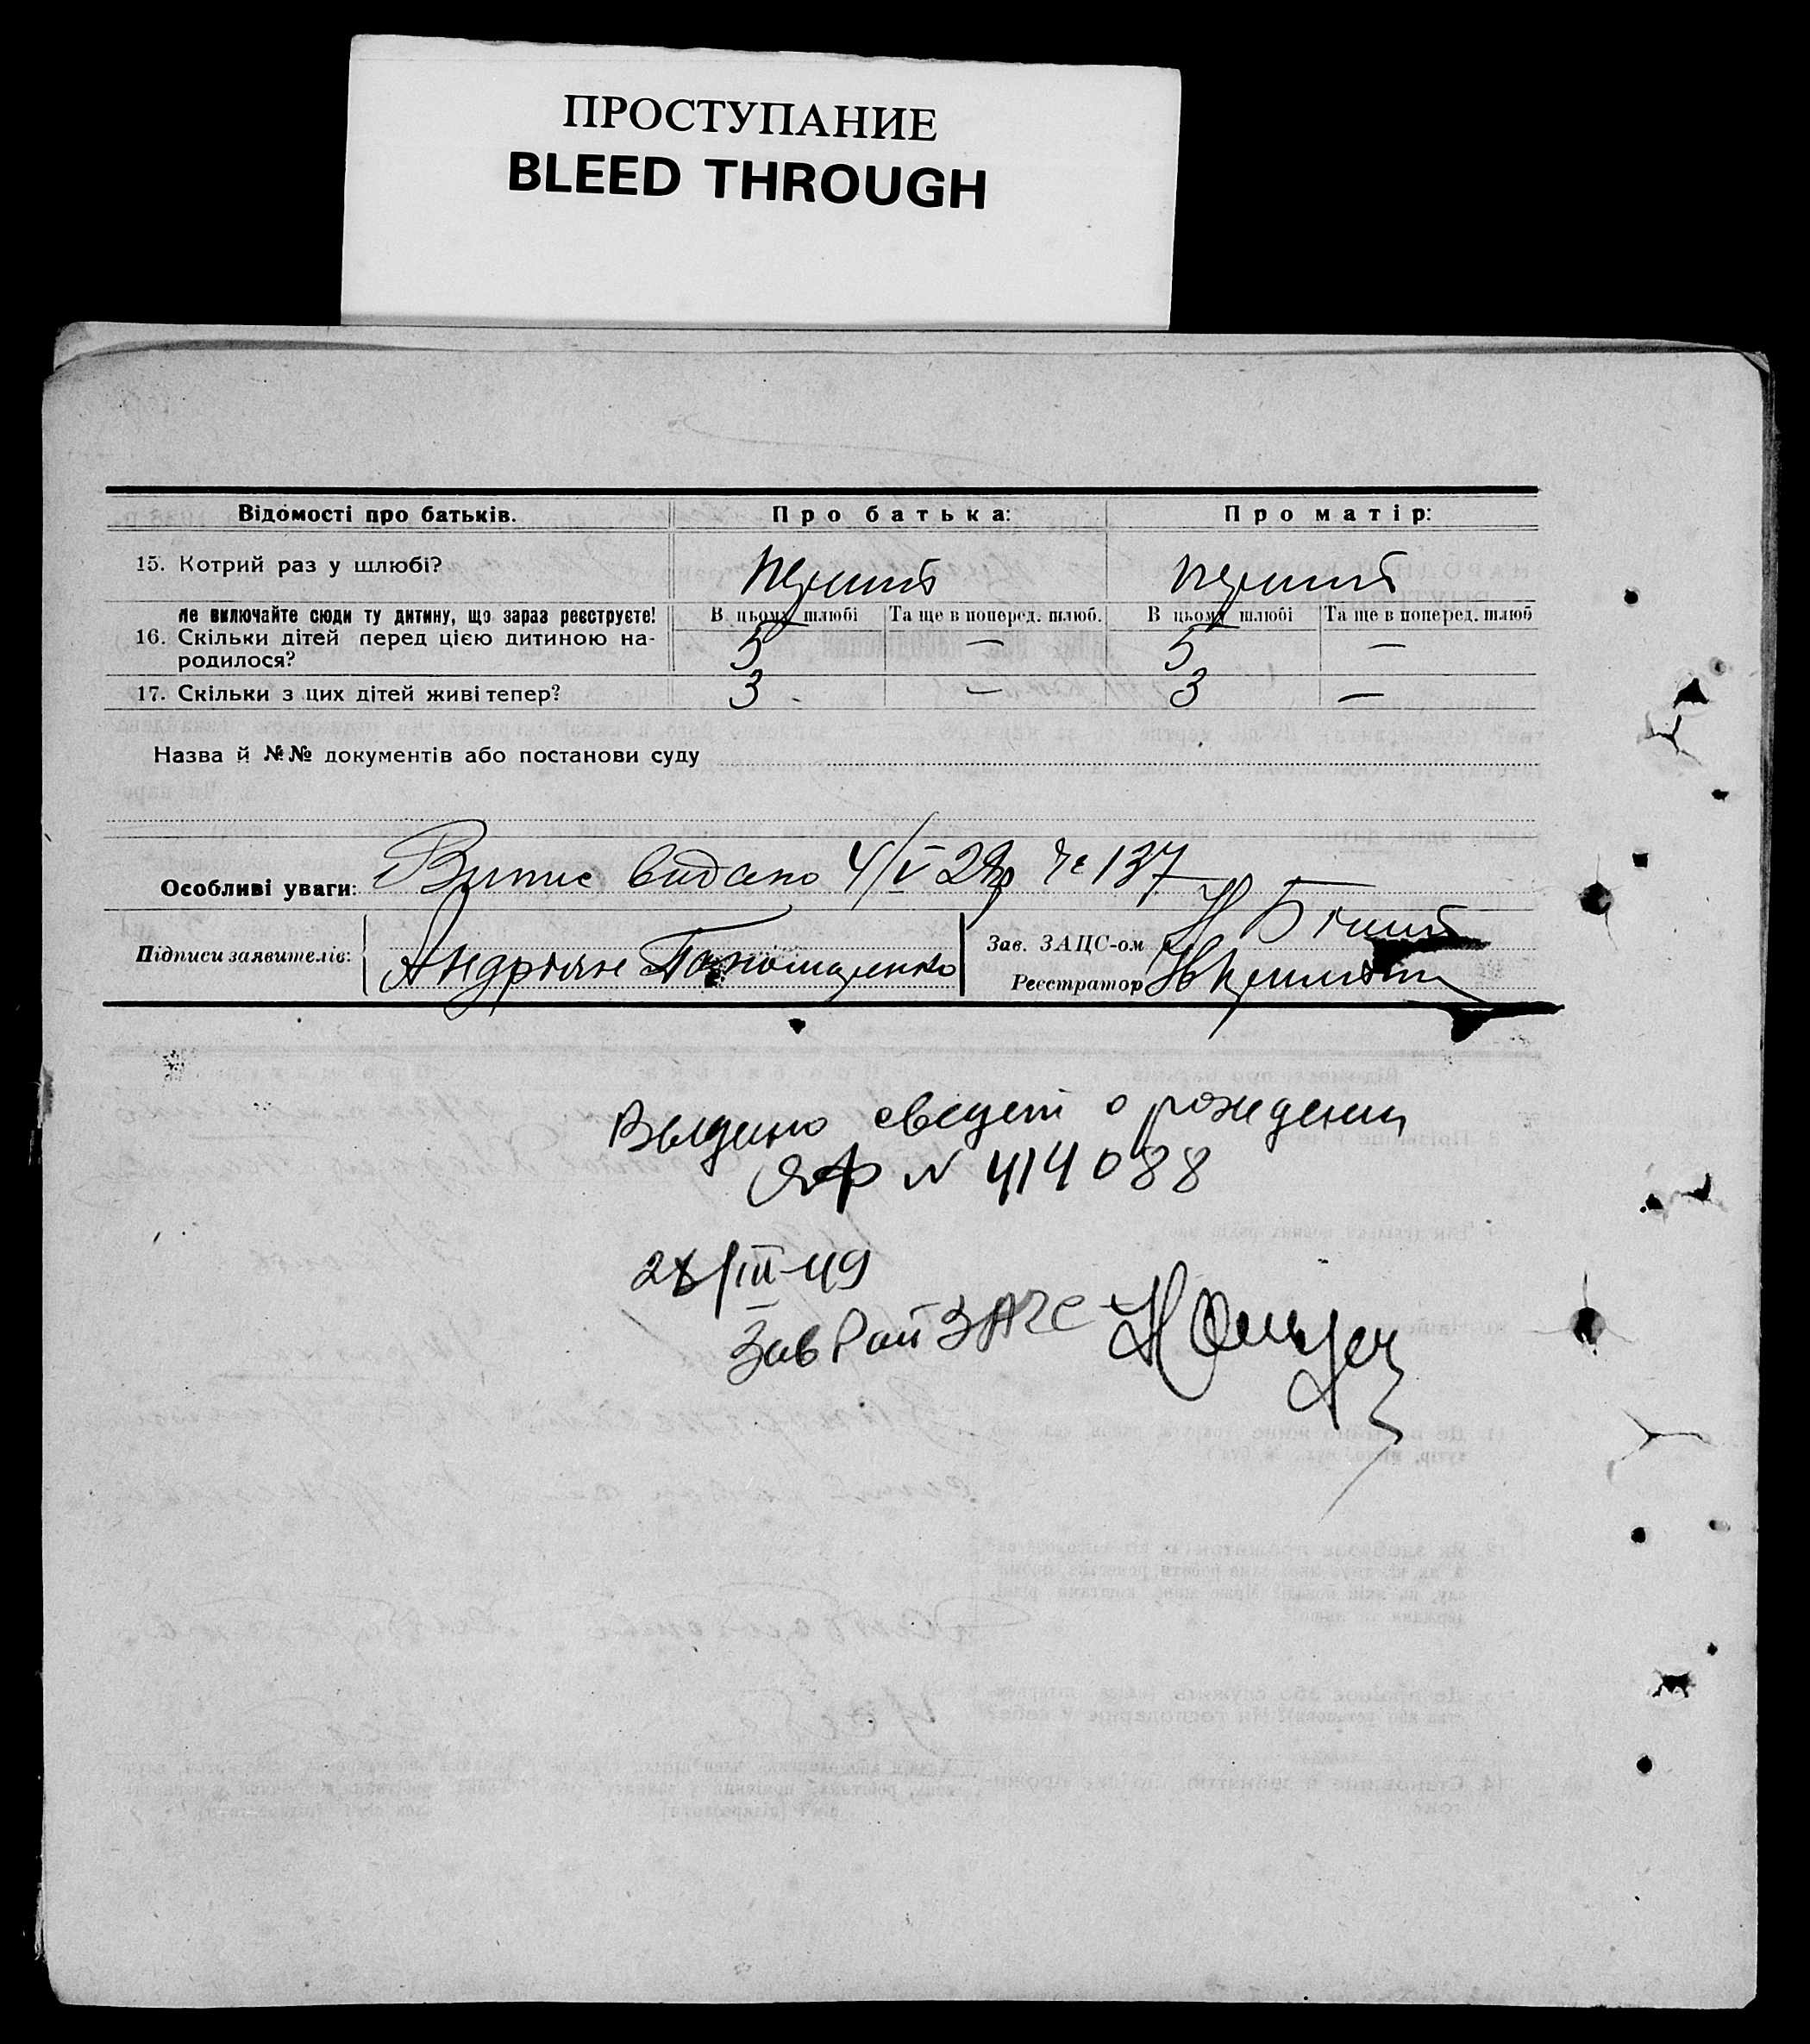 ПРОСТУПАНИЕ
BLEED THROUGH
Відомості про батьків. Про батька: Про матір:
15. Котрий раз у шлюбі? перший перший
не включайте сюди ту дитину, що зараз реєструєте! В цьому шлюбі Та ще в поперед. шлюб. В цьому шлюбі Та ще в поперед. шлюб
16. Скільки дітей перед цією дитиною на- 5 — 5 —
родилося?
17. Скільки з цих дітей живі тепер? 3 — 3 —
Назва й №№ документів або постанови суду
Особливі уваги: Випис видано 4/V 28р Че 137
Підписи заявителів: Андріян Пономаренко Зав. ЗАЦС-ом
Реєстратор
Выдано свидет о рождении
ЯФ N 414088
28/III-49
Зав Рай ЗАГС